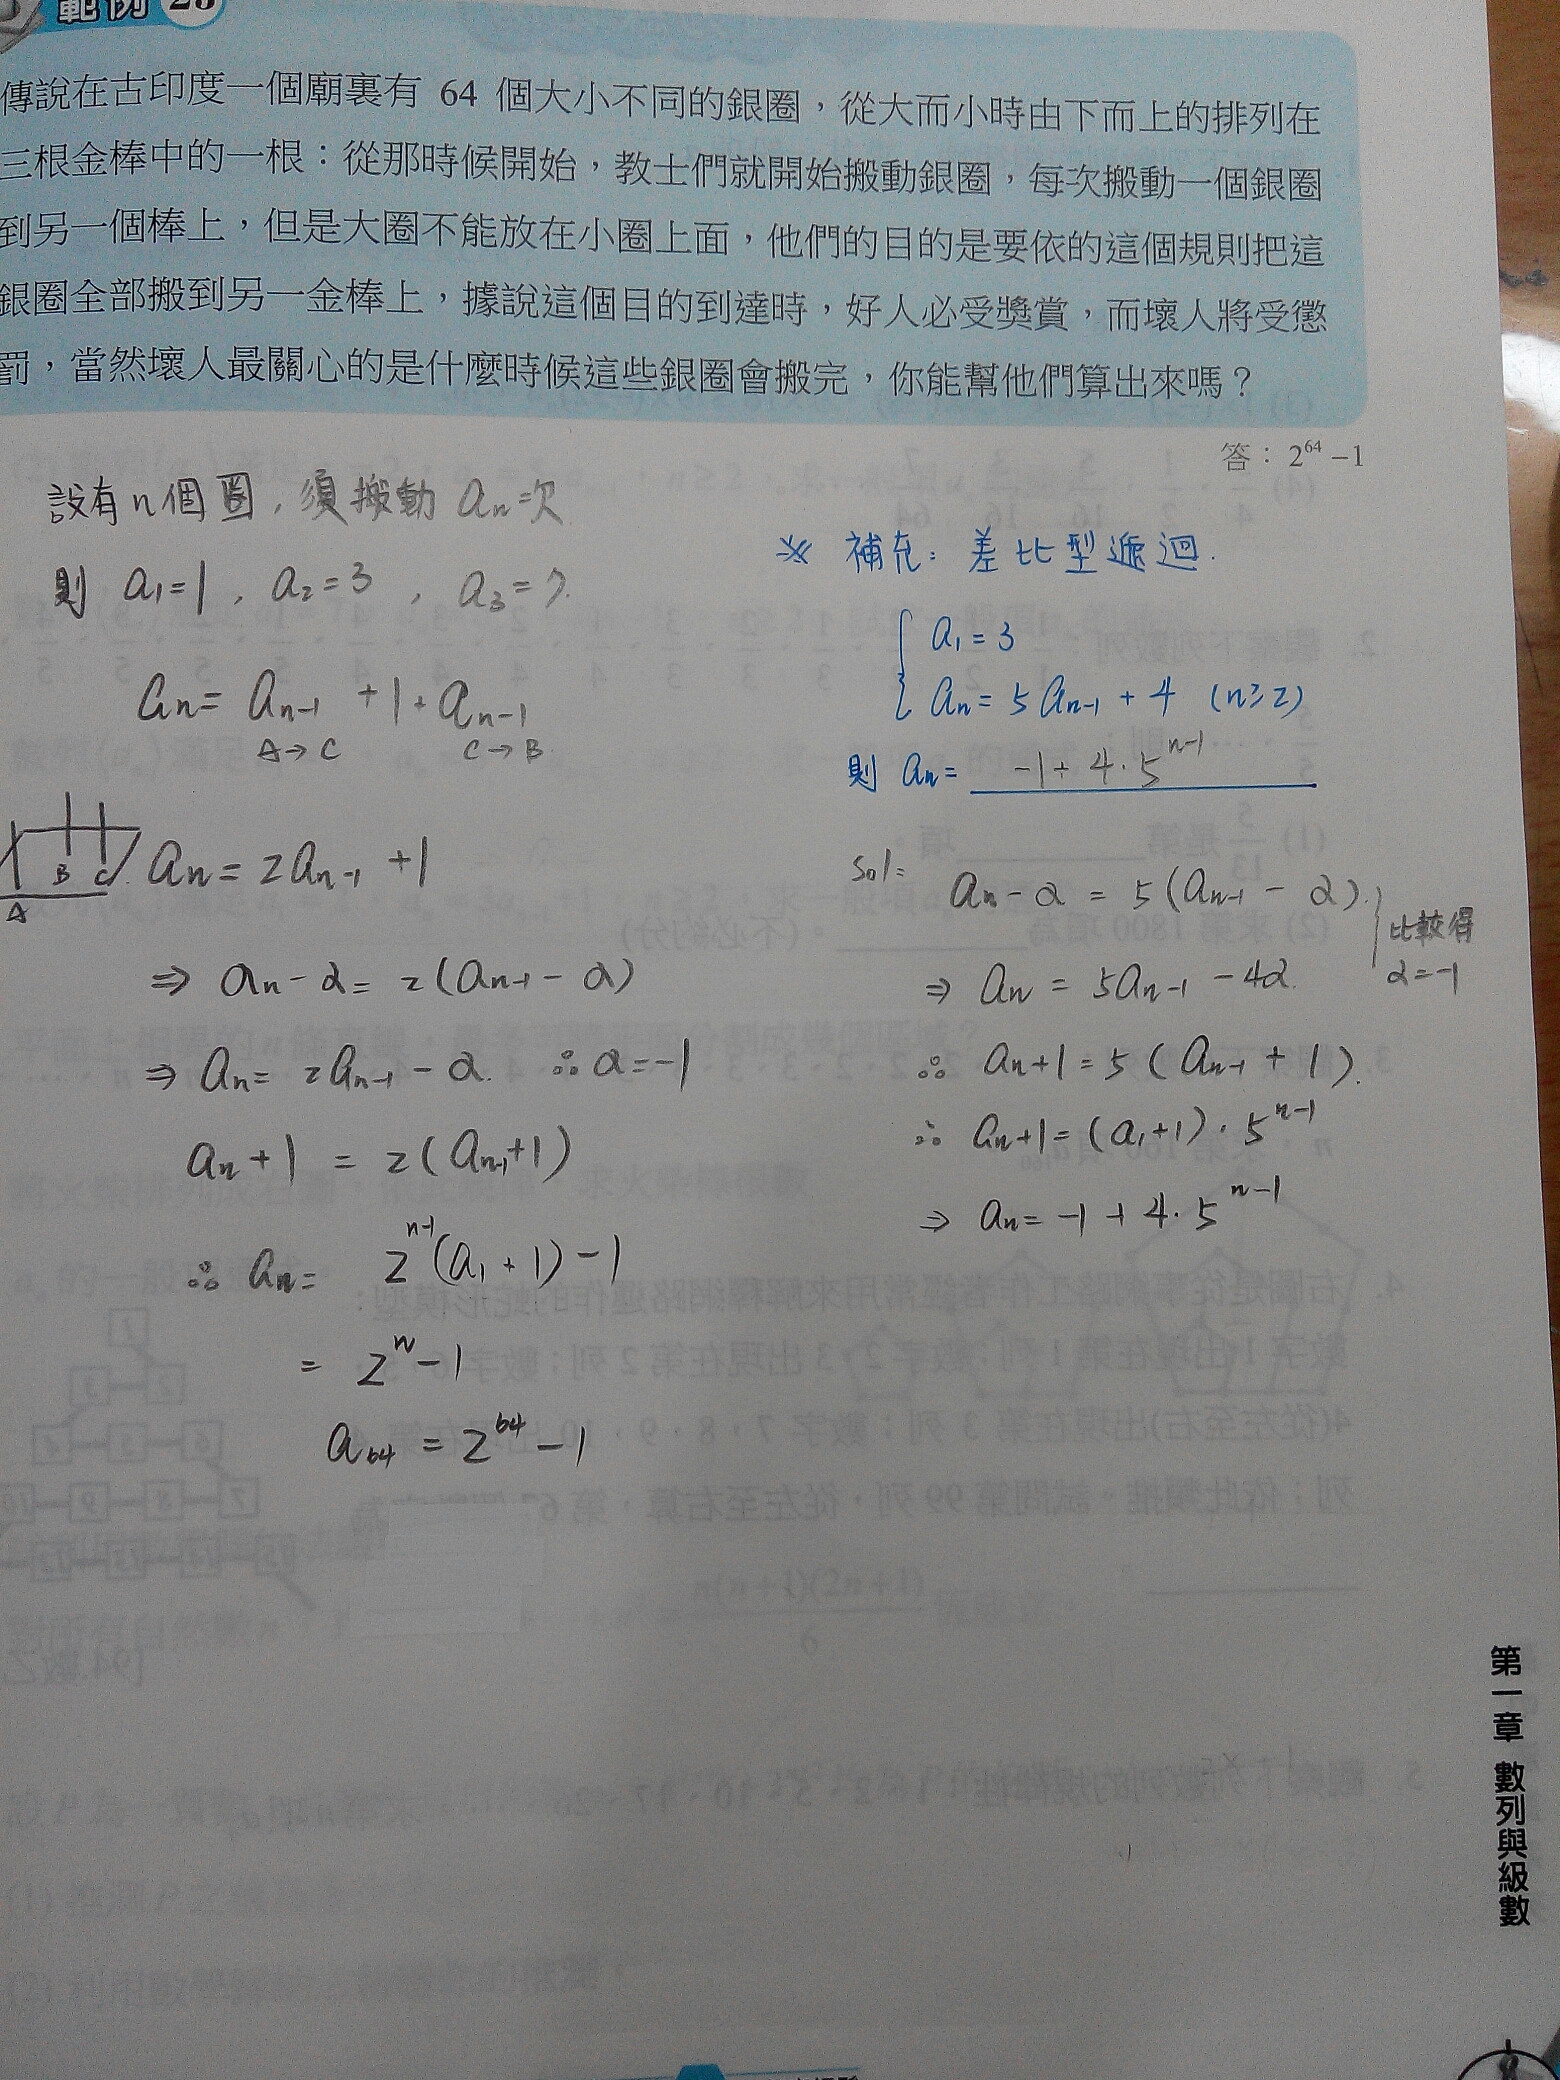 範例
傳說在古印度一個廟裏有 64 個大小不同的銀圈，從大而小時由下而上的排列在
三根金棒中的一根：從那時候開始，教士們就開始搬動銀圈，每次搬動一個銀圈
到另一個棒上，但是大圈不能放在小圈上面，他們的目的是要依的這個規則把這
銀圈全部搬到另一金棒上，據說這個目的到達時，好人必受獎賞，而壞人將受懲
罰，當然壞人最關心的是什麼時候這些銀圈會搬完，你能幫他們算出來嗎？
答：2^64 −1
設有n個圈，須搬動 an次
則 a1=1 , a2=3 , a3=7.
an= an-1 +1+ an-1
A→C C→B
A B C
an= 2an-1 +1
⇒ an-α= 2(an-1 - α)
⇒ an= 2an-1 - α. ∴α=-1
an+1 = 2(an-1+1)
∴ an= 2^n-1(a1+1)-1
= 2^n-1
a64 = 2^64-1
※ 補充：差比型遞迴.
a1=3
an=5an-1+4 (n≥2)
則 an= -1+4·5^n-1
sol=
an-α = 5(an-1 - α).
⇒ an = 5an-1 -4α.
比較得
α=-1
∴ an+1=5(an-1+1).
∴ an+1=(a1+1)·5^n-1
⇒ an=-1+4·5^n-1
第一章 數列與級數